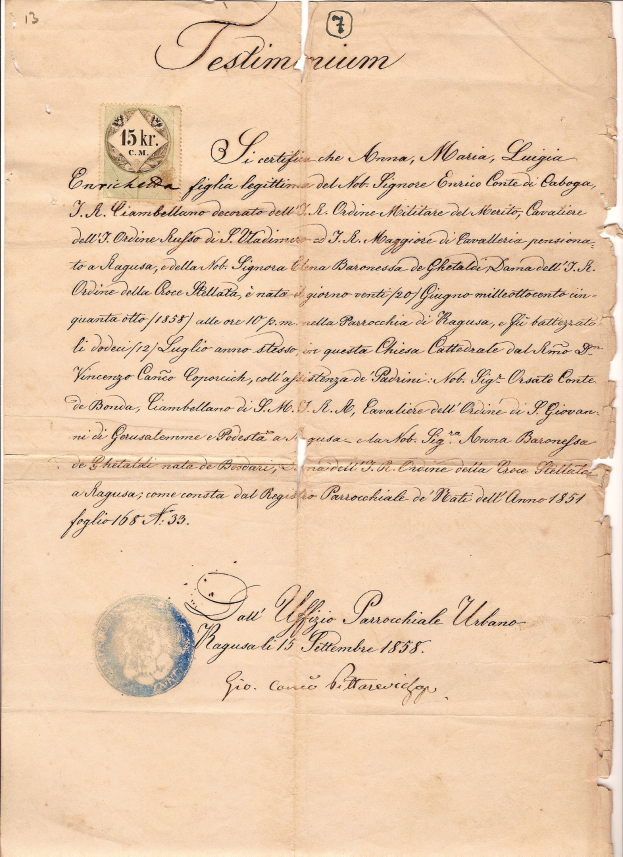 13
7
Testimonium
15 kr.
C. M.
Si certifica che Anna, Maria, Luigia
Enrichetta figlia legittima del Nob. Signore Enrico Conte di Caboga,
I. R. Ciambellano decorato dell'I. R. Ordine Militare del Merito, Cavaliere
dell'I. Ordine Russo di S. Vladimiro ed I. R. Maggiore di Cavalleria pensiona-
to a Ragusa, e della Nob. Signora Elena Baronessa de Ghetaldi, Dama dell'I. R.
Ordine della Croce Stellata, è nata il giorno venti /20/ Giugno milleottocento cin-
quanta otto /1858/ alle ore 10 p. m. nella Parrocchia di Ragusa, e fù battezzata
li dodeci /12/ Luglio anno stesso, in questa Chiesa Cattedrale dal Rmo Dn
Vincenzo Canco, coll'assistenza de' Padrini: Nob. Sigr. Orsato Conte
de Bonda, Ciambellano di S. M. I. R. A., Cavaliere dell'Ordine di S. Giovan-
ni di Gerusalemme e Podestà a Ragusa e la Nob. Sigra. Anna Baronessa
de Ghetaldi nata de Bosdari, Dama dell'I. R. Ordine della Croce Stellata
a Ragusa; come consta dal Registro Parrocchiale de' Nati dell'Anno 1851
foglio 168 N. 33.
Dall' Uffizio Parrocchiale Urbano
Ragusa li 15 Settembre 1858.
Gio. canco